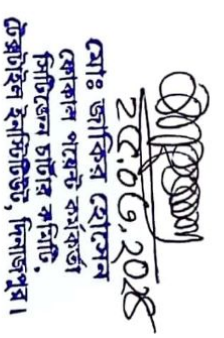 ২৫.০৬.২০২৫
মোঃ জাকির হোসেন
ফোকাল পয়েন্ট কর্মকর্তা
সিটিজেন চার্টার কমিটি,
টেক্সটাইল ইনস্টিটিউট, দিনাজপুর।